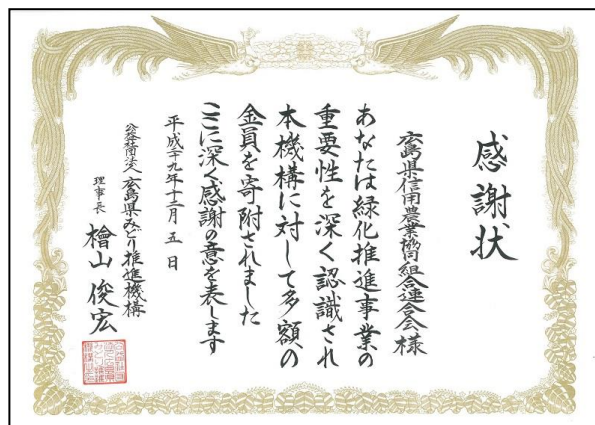 感謝状
広島県信用農業協同組合連合会様
あなたは緑化推進事業の
重要性を深く認識され
本機構に対して多額の
金員を寄附されました
ここに深く感謝の意を表します
平成二十九年十二月 五 日
公益社団法人 広島県みどり推進機構
理事長 檜山俊宏